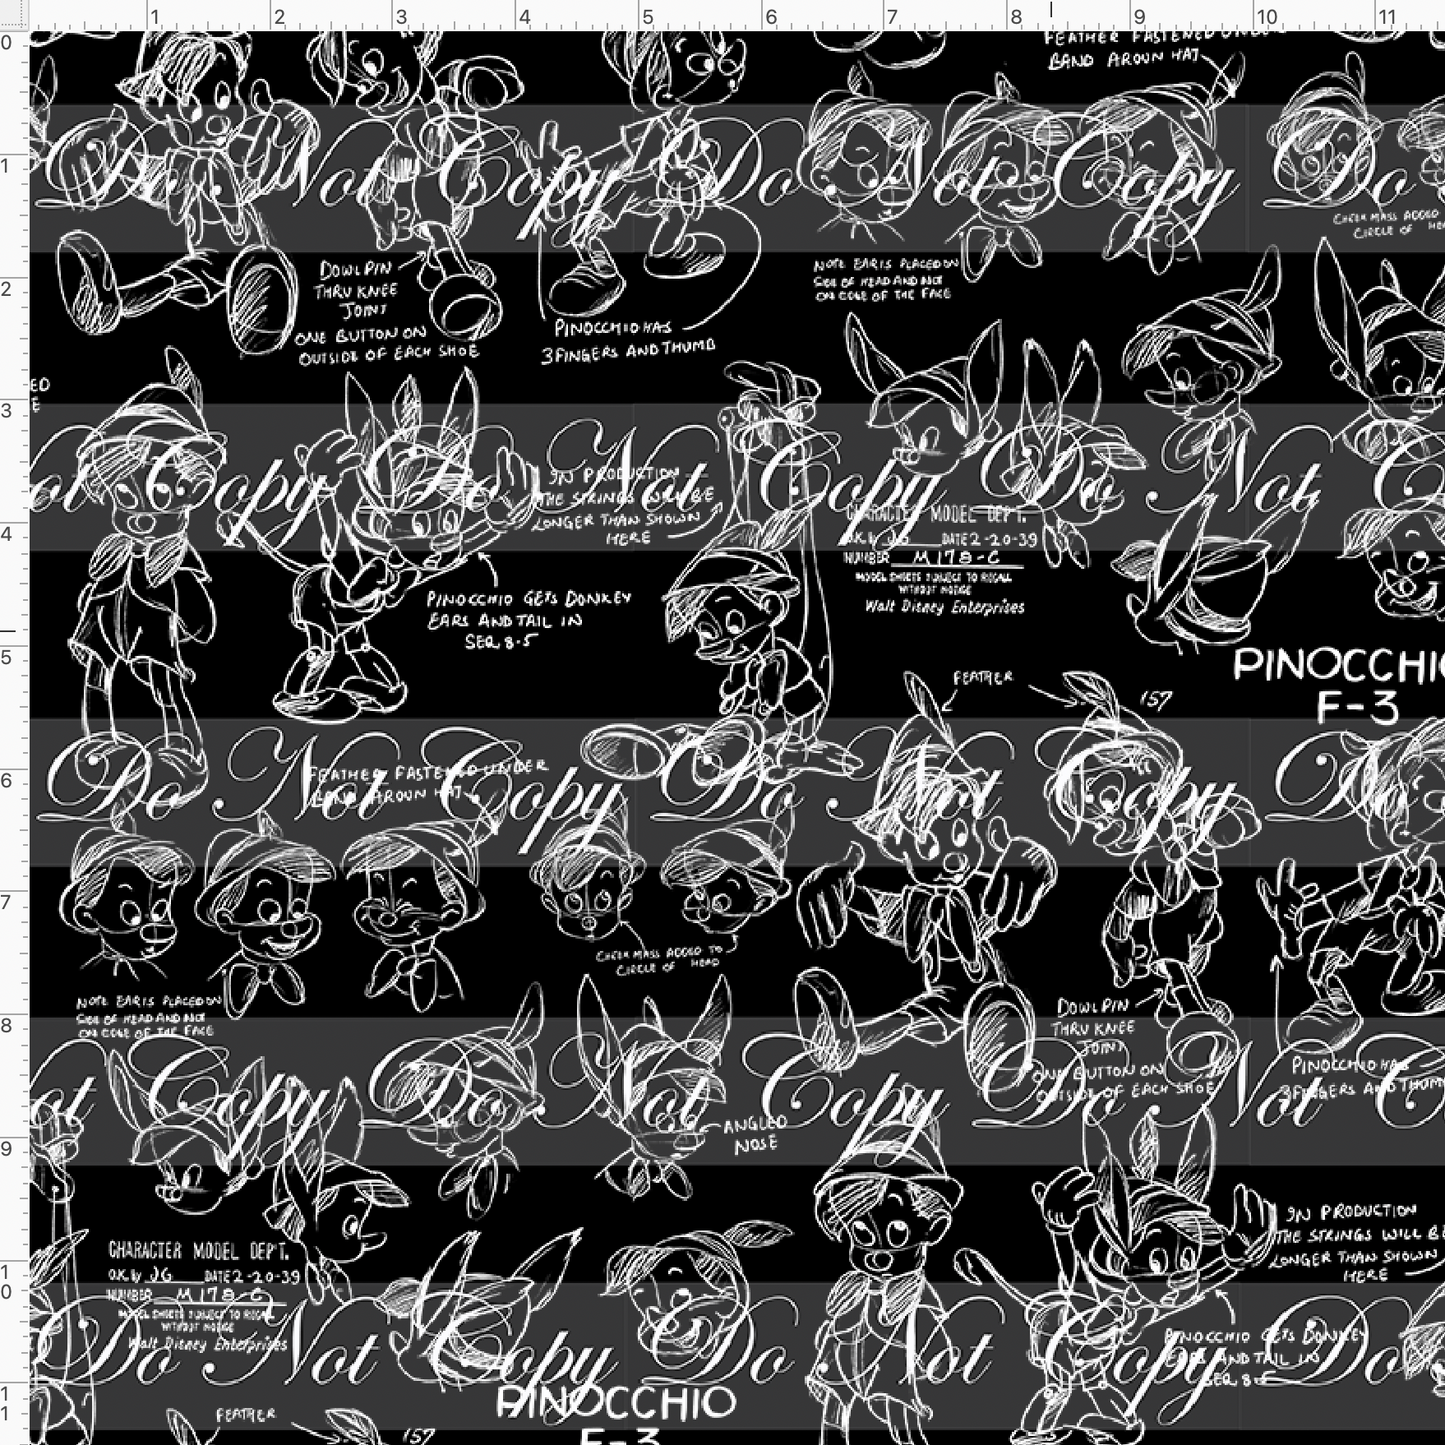 1 2 3 4 5 6 7 8 9 10 11
0
FEATHER FASTENED UNDER
BAND AROUN HAT
1
Do Not Copy Do Not Copy Do
CHEEK MASS ADDED
CIRCLE OF HEAD
DOWL PIN
THRU KNEE
JOINT
ONE BUTTON ON
OUTSIDE OF EACH SHOE
NOTE EAR IS PLACED ON
SIDE OF HEAD AND NOT
ON EDGE OF THE FACE
2
PINOCCHIO HAS
3 FINGERS AND THUMB
3
ED
Not Copy Do Not Copy Do Not C
IN PRODUCTION
THE STRINGS WILL BE
LONGER THAN SHOWN
HERE
4
CHARACTER MODEL DEP'T.
O.K. by JG DATE 2-20-39
NUMBER M178-C
MODEL SHEETS SUBJECT TO RECALL
WITHOUT NOTICE
Walt Disney Enterprises
PINOCCHIO GETS DONKEY
EARS AND TAIL IN
SEQ. 8-5
5
PINOCCHIO
F-3
FEATHER
157
6
Do Not Copy Do Not Copy Do
FEATHER FASTENED UNDER
BAND AROUN HAT
7
CHEEK MASS ADDED TO
CIRCLE OF HEAD
NOTE EAR IS PLACED ON
SIDE OF HEAD AND NOT
ON EDGE OF THE FACE
DOWL PIN
THRU KNEE
JOINT
ONE BUTTON ON
OUTSIDE OF EACH SHOE
PINOCCHIO HAS
3 FINGERS AND THUMB
8
Not Copy Do Not Copy Do Not C
ANGLED
NOSE
9
IN PRODUCTION
THE STRINGS WILL BE
LONGER THAN SHOWN
HERE
CHARACTER MODEL DEP'T.
O.K. by JG DATE 2-20-39
NUMBER M178-C
MODEL SHEETS SUBJECT TO RECALL
WITHOUT NOTICE
Walt Disney Enterprises
10
Do Not Copy Do Not Copy Do
PINOCCHIO GETS DONKEY
EARS AND TAIL IN
SEQ. 8-5
11
PINOCCHIO
F-3
FEATHER
157